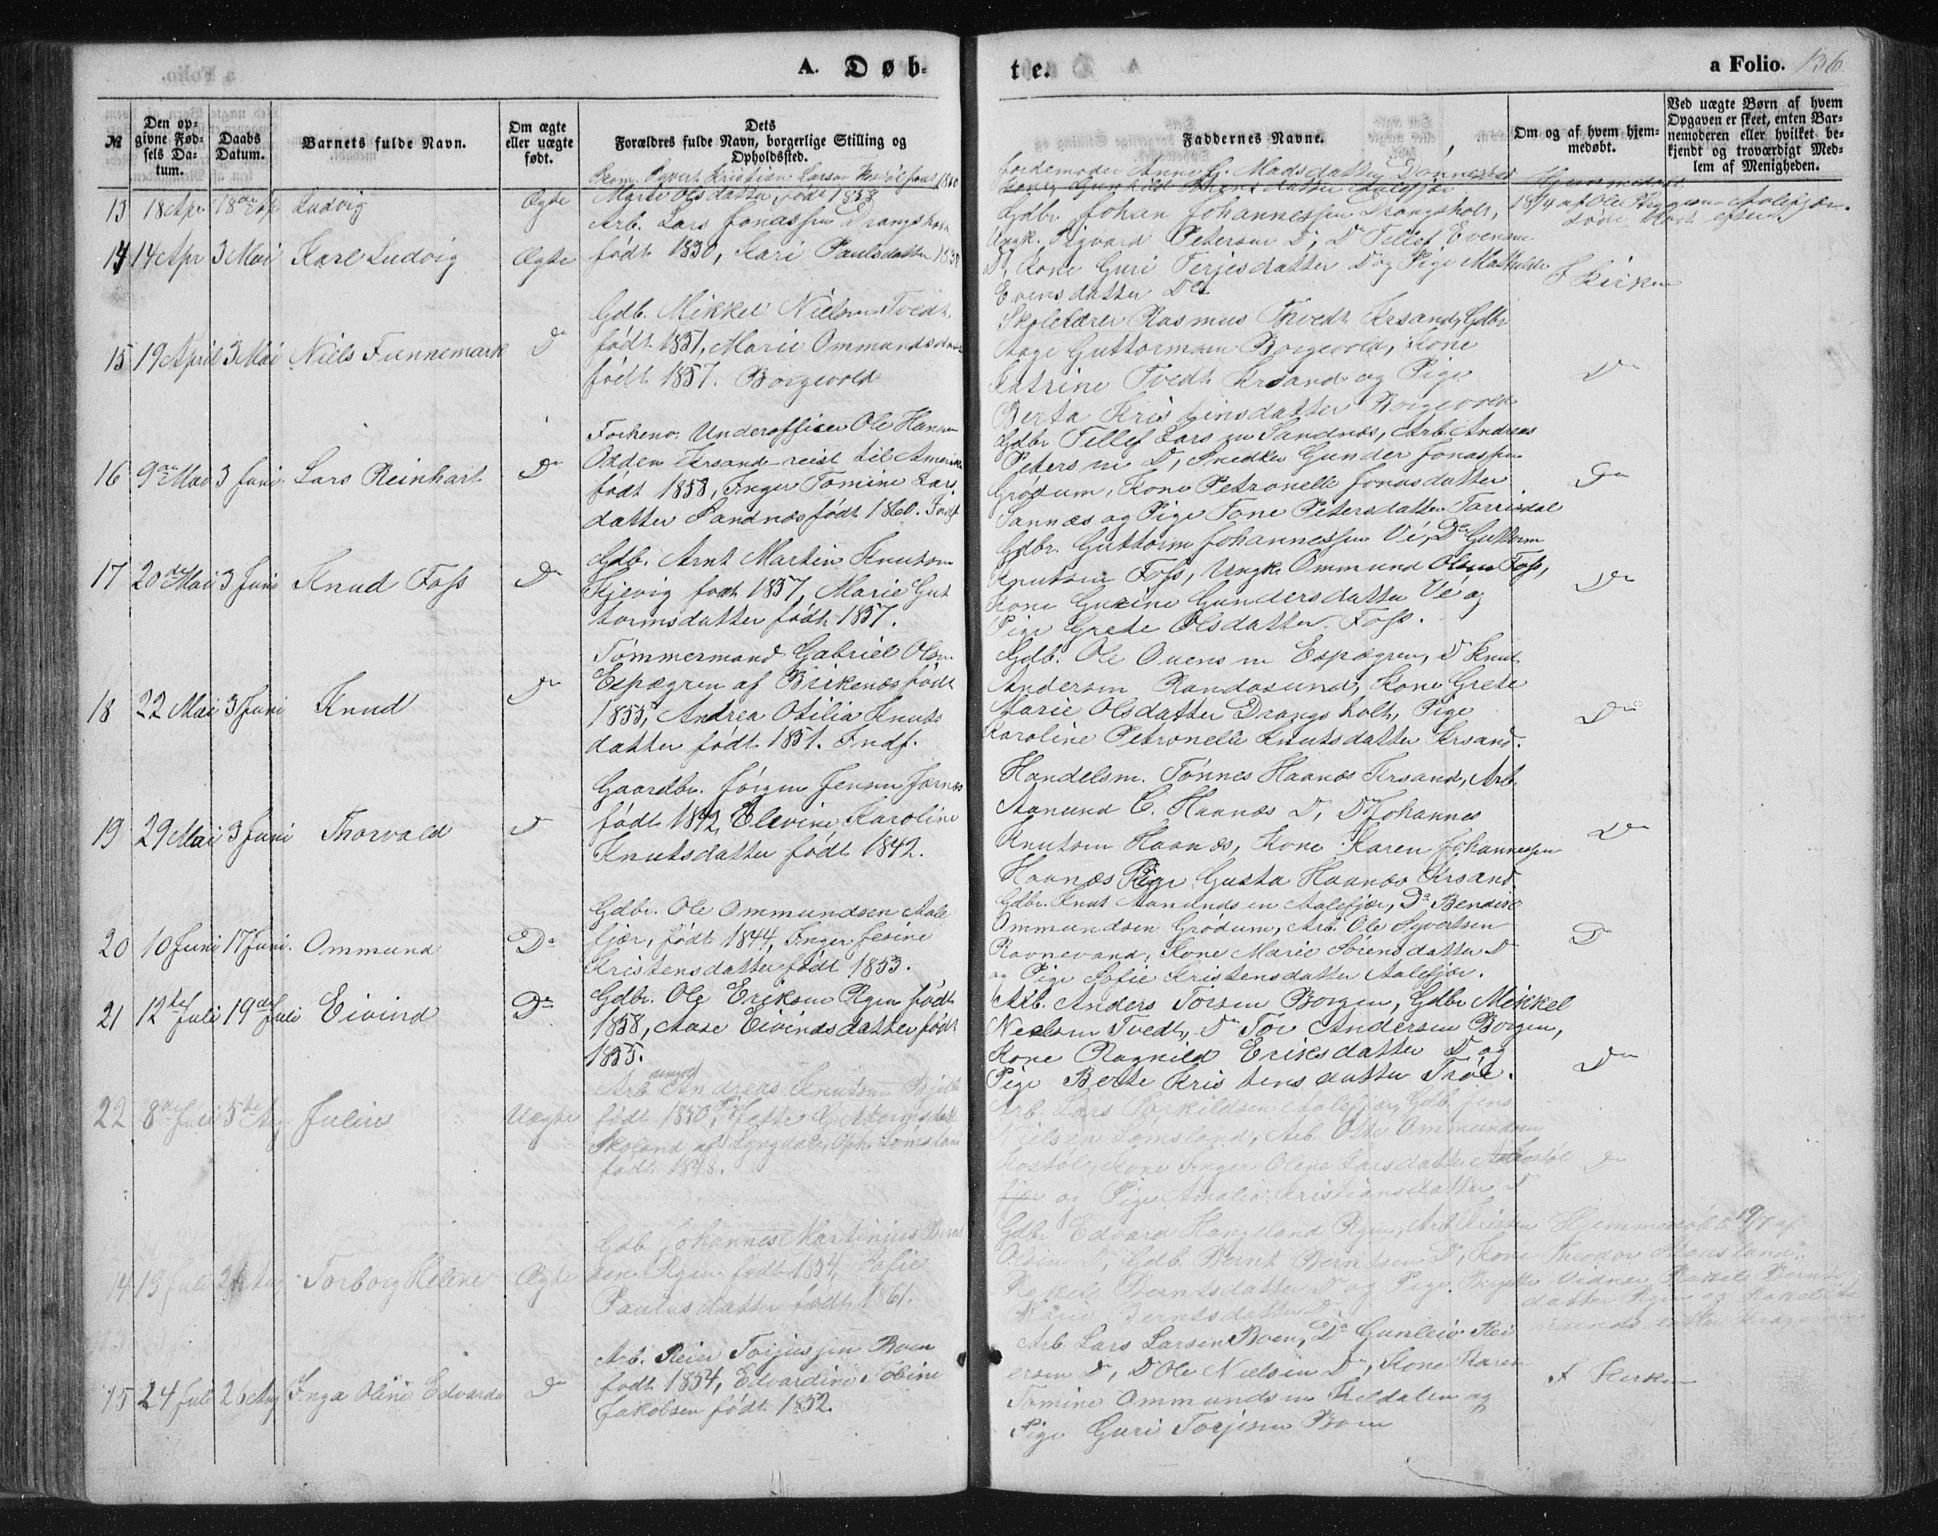 A. Døb-
te.
a Folio. 136
№
Den op-
givne Fød-
sels Da-
tum.
Daabs
Datum.
Barnets fulde Navn.
Om ægte
eller uægte
født.
Dets
Forældres fulde Navn, borgerlige Stilling og
Opholdssted.
Faddernes Navne.
Om og af hvem hjem-
medøbt.
Ved uægte Børn af hvem
Opgaven er skeet, enten Bar-
nemoderen eller hvilket be-
kjendt og troværdigt Med-
lem af Menigheden.
13 18 Apr 18de Ludvig Ægte
Kristian Larsen
Marie Olsdatter, født 1858
Jordemoder Anne G. Madsdatter
14 14 Apr 3 Mai Karl Ludvig Ægte
Arb. Lars Jonassen Drangsholt
født 1850, Kari Paulsdatter
Gdbr Johan Johannessen Drangsholt,
Ungk. Sigvard Petersen Do, Do Tellef Evensen
Do, Kone Guri Terjesdatter Do og Pige Mathilde
Evensdatter Do
I Kirken
15 19 April 3 Mai Niels Funnemark Do
Gdb. Mikkel Nielsen Tvedt
født 1851, Marie Ommundsdatter
født 1857. Borgevold
Skolelærer Rasmus Tvedt Krsand, Gdbr
Aage Guttormsen Borgevold, Kone
Katrine Tvedt Krsand og Pige
Berta Kristensdatter Borgevold
Do
16 9de Mai 3 Juni Lars Reinhart Do
Forhenv. Underofficer Ole Hansen
Odden Krsand reist til Amerika
født 1858, Inger Tomine Lars
datter Sandnæs født 1860. Indf
Gdbr Tellef Larsen Sandnæs, Arb. Andreas
Petersen Do, Snedker Gunder Jonassen
Grødum, Kone Petronelle Jonasdatter
Sannæs og Pige Tone Petersdatter Torrisdal
Do
17 20de Mai 3 Juni Knud Foss Do
Gdb. Arnt Martin Knutsen
Kjevig født 1857, Marie Gut
tormsdatter født 1857.
Gdbr. Guttorm Johannessen Ve, Do Guttorm
Knutsen Foss, Ungk. Ommund Olsen Foss,
Kone Gurine Gundersdatter Ve og
Pige Grete Olsdatter Foss.
Do
18 22 Mai 3 Juni Knud Do
Tømmermand Gabriel Olsen
Espegren af Birkenæs født
1855, Andrea Otilia Knuts
datter født 1851. Indf.
Gdb. Ole Ouensen Espegren, Do Knud
Andersen Randøsund, Kone Grete
Marie Olsdatter Drangsholt, Pige
Karoline Petronelle Knutsdatter Krsand.
Do
19 29 Mai 3 Juni Thorvald Do
Gaardbr. Jørgen Jensen
født 1842, Elevine Karoline
Knutsdatter født 1842.
Handelsm. Tønnes Haanæs Krsand, Arb.
Aanund C. Haanæs Do, Do Johannes
Knutsen Haanæs, Kone Karen Johannessen
Haanæs Pige Gusta Haanæs Krsand
Do
20 10 Juni 17 Juni. Ommund Do
Gdbr. Ole Ommundsen Aale
fjær, født 1844, Inger Jesine
Kristensdatter født 1853.
Gdbr. Knut Aanundsen Aalefjær, Do Bendix
Ommundsen Grødum, Arb. Ole Syvertsen
Ravnevand, Kone Marie Sørensdatter Do
og Pige Sofie Kristensdatter Aalefjær.
Do
21 12te Juli 19de Juli Eivind Do
Gdbr. Ole Eriksen Rygen født
1858, Aase Eivindsdatter født
1855.
Arb. Anders Torsen Borgen, Gdbr Mikkel
Nielsen Tvedt, Do Tor Andersen Borgen,
Kone Ragnild Eriksdatter Do og
Pige Berte Kristensdatter Trøe.
Do
22 8de Juli 5te Aug Julia Uægte
Arb. Andreas Knutsen
født 1850, Guttormsdatt
Skoland af Lyngdal, Oph. Lømsland
født 1848.
Arb. Lars Torkildsen Aalefjær, Gdb. Jens
Nielsen Lømsland, Arb. Otte Ommundsen
Kostøl, Kone Inger Olene Larsdatter Kostøl
og Pige Amalia Kristiansdatter Do
Do
14 19 Juli Aug Torborg Helene Ægte
Gdb. Johannes Martinius Bernt
sen Rygen født 1854, Sofie
Paulusdatter født 1861.
Gdbr Edvard Haugland Rygen, Arb Kristen
Olsen Do, Gdb. Bernt Berntsen Do, Kone
Rakel Berntsdatter Do og Pige
Marie Berntsdatter Do
Hjemmedøbt 19/7 af
Theodor
Vidner Rakel Bernts
datter Rygen og
15 24 Juli 26 Aug Inga Oline Edvarda Do
Arb. Reier Torjussen Boen
født 1854, Edvardine Tobine
Jakobsen født 1852.
Arb Lars Larsen Boen, Do Gunleiv Rei
ersen Do, Do Ole Nielsen Do, Kone Karen
Tomine Ommundsen Kieldalen og
Pige Guri Torjesen Boen
I Kirken